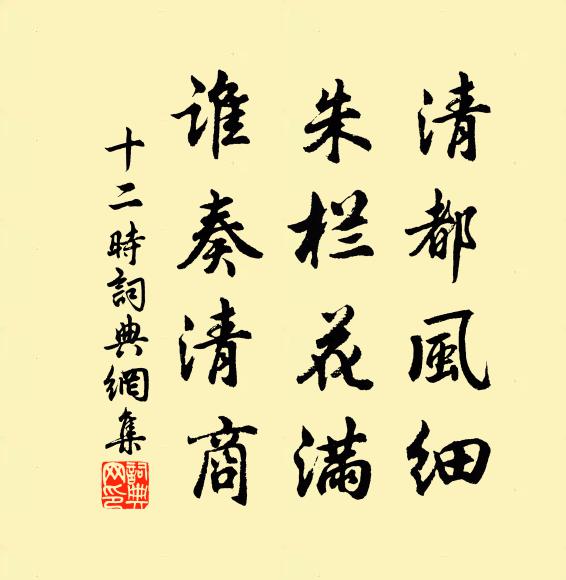 清都風细
朱栏花滿
谁奏清商
十二時詞典網集
詞典網印